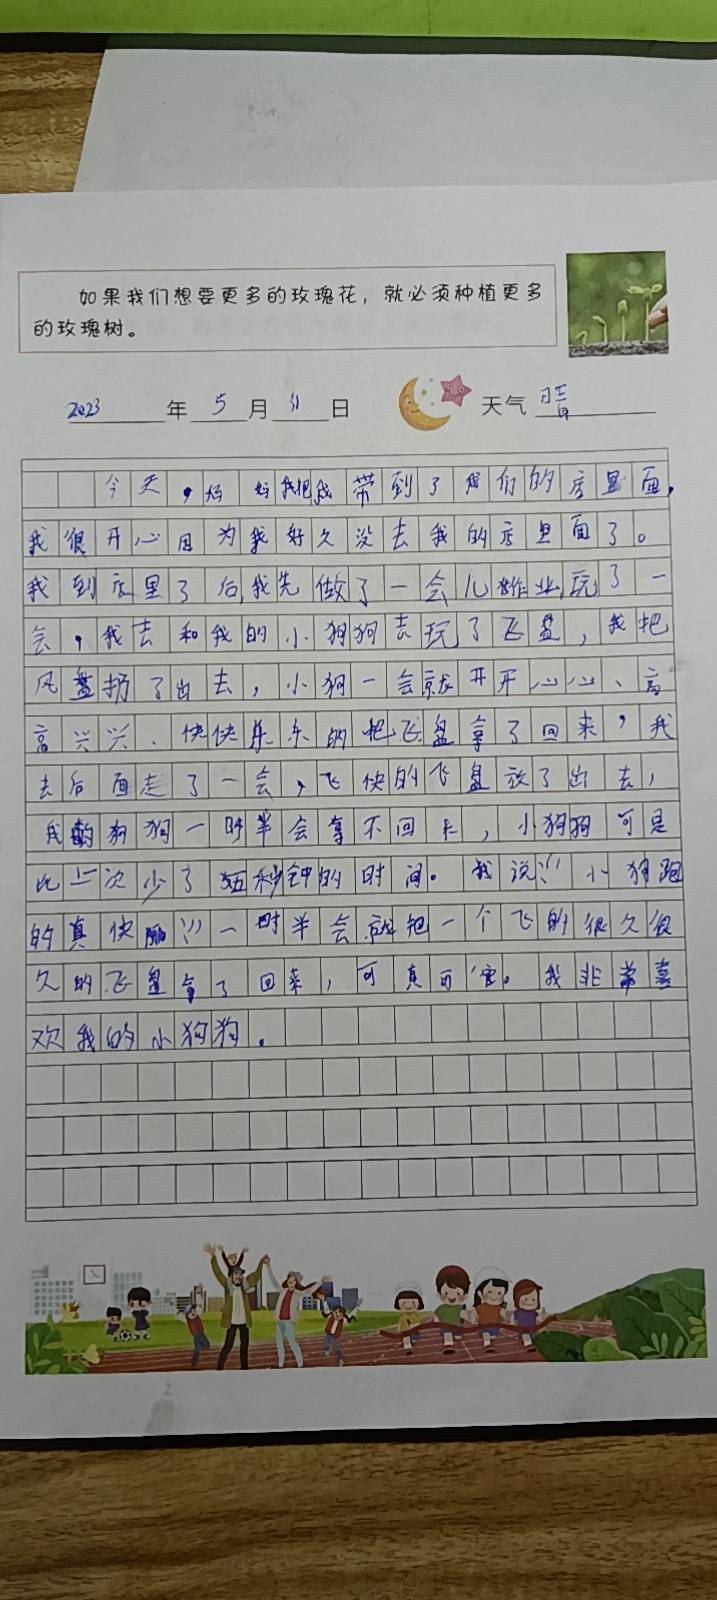 如果我们想要更多的玫瑰花，就必须种植更多
的玫瑰树。
2023年5月31日 天气 晴
今天，妈妈把我带到了我们的店里面，
我很开心因为我好久没去我的店里面了。
我到店里了后,我先做了一会儿作业,玩了一
会，我去和我的小狗狗去玩了飞盘，我把
风盘扔了出去，小狗一会就开开心心、高
高兴兴、快快乐乐的把飞盘拿了回来，我
去后面走了一会，飞快的飞盘放了出去，
我的狗狗一时半会拿不回来，小狗狗可是
比上次少了五秒钟的时间。我说:小狗跑
的真快啊!一时半会就把一个飞的很久很
久的飞盘拿了回来，可真可爱。我非常喜
欢我的小狗狗。